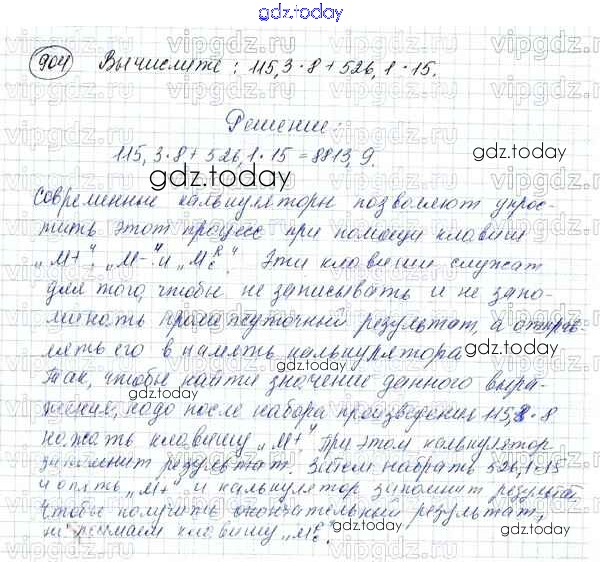 gdz.today
904 Вычислите: 115,3·8+526,1·15.
Решение:
115,3·8+526,1·15=8813,9.
gdz.today
Современные калькуляторы позволяют упрос-
тить этот процесс при помощи клавиш
„М+", „М-" и „МRc". Эти клавиши служат
для того, чтобы не записывать и не запо-
минать промежуточный результат, а отправ-
лять его в память калькулятора
gdz.today
Так, чтобы найти значение данного выра-
жения, надо после набора произведения 115,3·8
нажать клавишу „М+". При этом калькулятор
запомнит результат. Затем набрать 526,1·15
и опять „М+" и калькулятор запомнит результат.
Чтобы получить окончательный результат,
нажимаем клавишу „МRc".
gdz.today